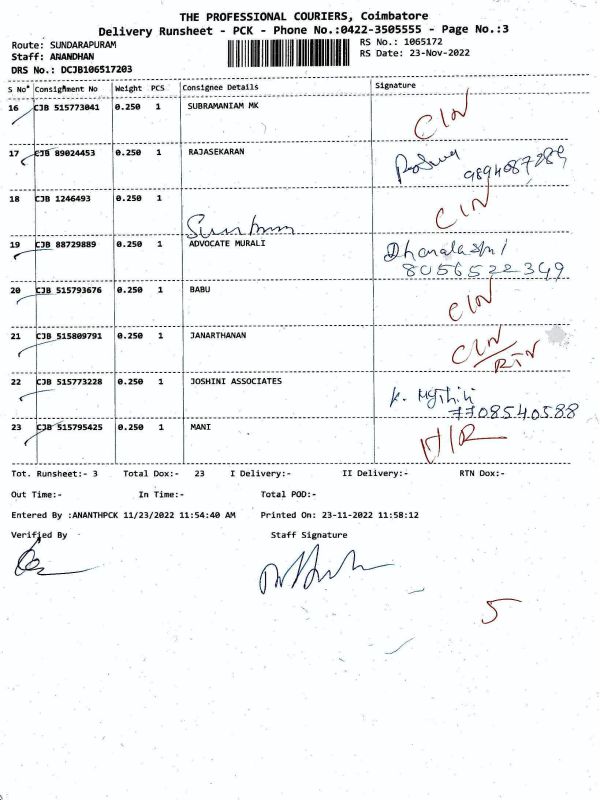 THE PROFESSIONAL COURIERS, Coimbatore
Delivery Runsheet - PCK - Phone No.:0422-3505555 - Page No.:3
Route: SUNDARAPURAM
RS No.: 1065172
Staff: ANANDHAN
RS Date: 23-Nov-2022
DRS No.: DCJB106517203
S No Consignment No Weight PCS Consignee Details Signature
16 CJB 515773041 0.250 1 SUBRAMANIAM MK CIN
17 CJB 89024453 0.250 1 RAJASEKARAN
9894087289
18 CJB 1246493 0.250 1 CIN
19 CJB 88729889 0.250 1 ADVOCATE MURALI
8056522349
20 CJB 515793676 0.250 1 BABU CIN
21 CJB 515809791 0.250 1 JANARTHANAN CIN
RTN
22 CJB 515773228 0.250 1 JOSHINI ASSOCIATES
7708540588
23 CJB 515795425 0.250 1 MANI
Tot. Runsheet:- 3 Total Dox:- 23 I Delivery:- II Delivery:- RTN Dox:-
Out Time:- In Time:- Total POD:-
Entered By :ANANTHPCK 11/23/2022 11:54:40 AM Printed On: 23-11-2022 11:58:12
Verified By Staff Signature
5